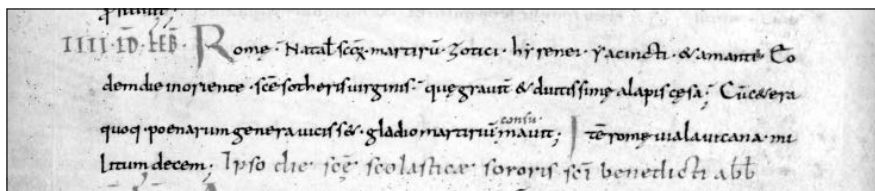 IIII· ID· FEB̅· Romę· Natał sc̅o̅ꝝ martirū· Zotici· hyrenei· yacincti· & amantii· Eo
dem die in oriente· sc̅e sotheris uirginis· quę graui̅t̅ & diutissimę alapis cęsa; Cu̅ & cęra
quoq· poenarum genera uicisset· gladio martiriū consūmauit; Ite̅ romę uia lauicana· mi
litum decem; Ipso die sc̅ę scolasticæ sororis sc̅i benedicti abb̅